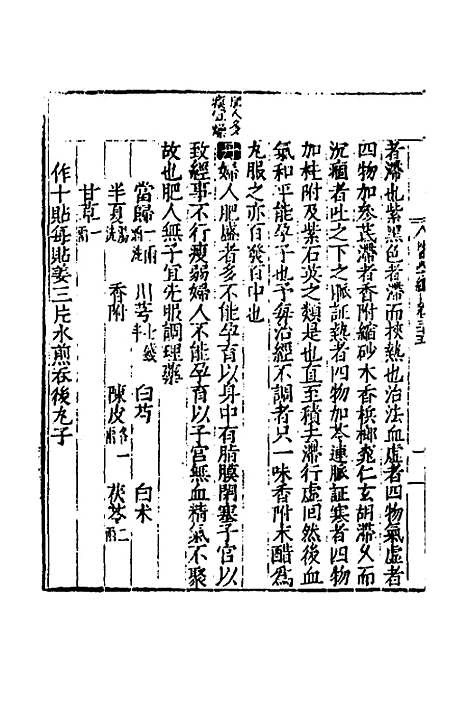 者滯也紫黑色者滯而挾熱也治法血虛者四物氣虛者
四物加參芪滯者香附縮砂木香檳榔桃仁玄胡滯久而
沉痼者吐之下之脈証熱者四物加芩連脈証寒者四物
加桂附及紫石英之類是也直至積去滯行虛回然後血
氣和平能孕子也予每治經不調者只一味香附末醋為
丸服之亦百發百中也
婦人肥盛者多不能孕育以身中有脂膜閉塞子宮以
致經事不行瘦弱婦人不能孕育以子宮無血精氣不聚
故也肥人無子宜先服調理藥
當歸一兩酒洗 川芎七錢半 白芍 白朮
半夏湯洗 香附 陳皮各一兩 茯苓二兩
甘草一兩
作十貼每貼姜三片水煎吞後丸子